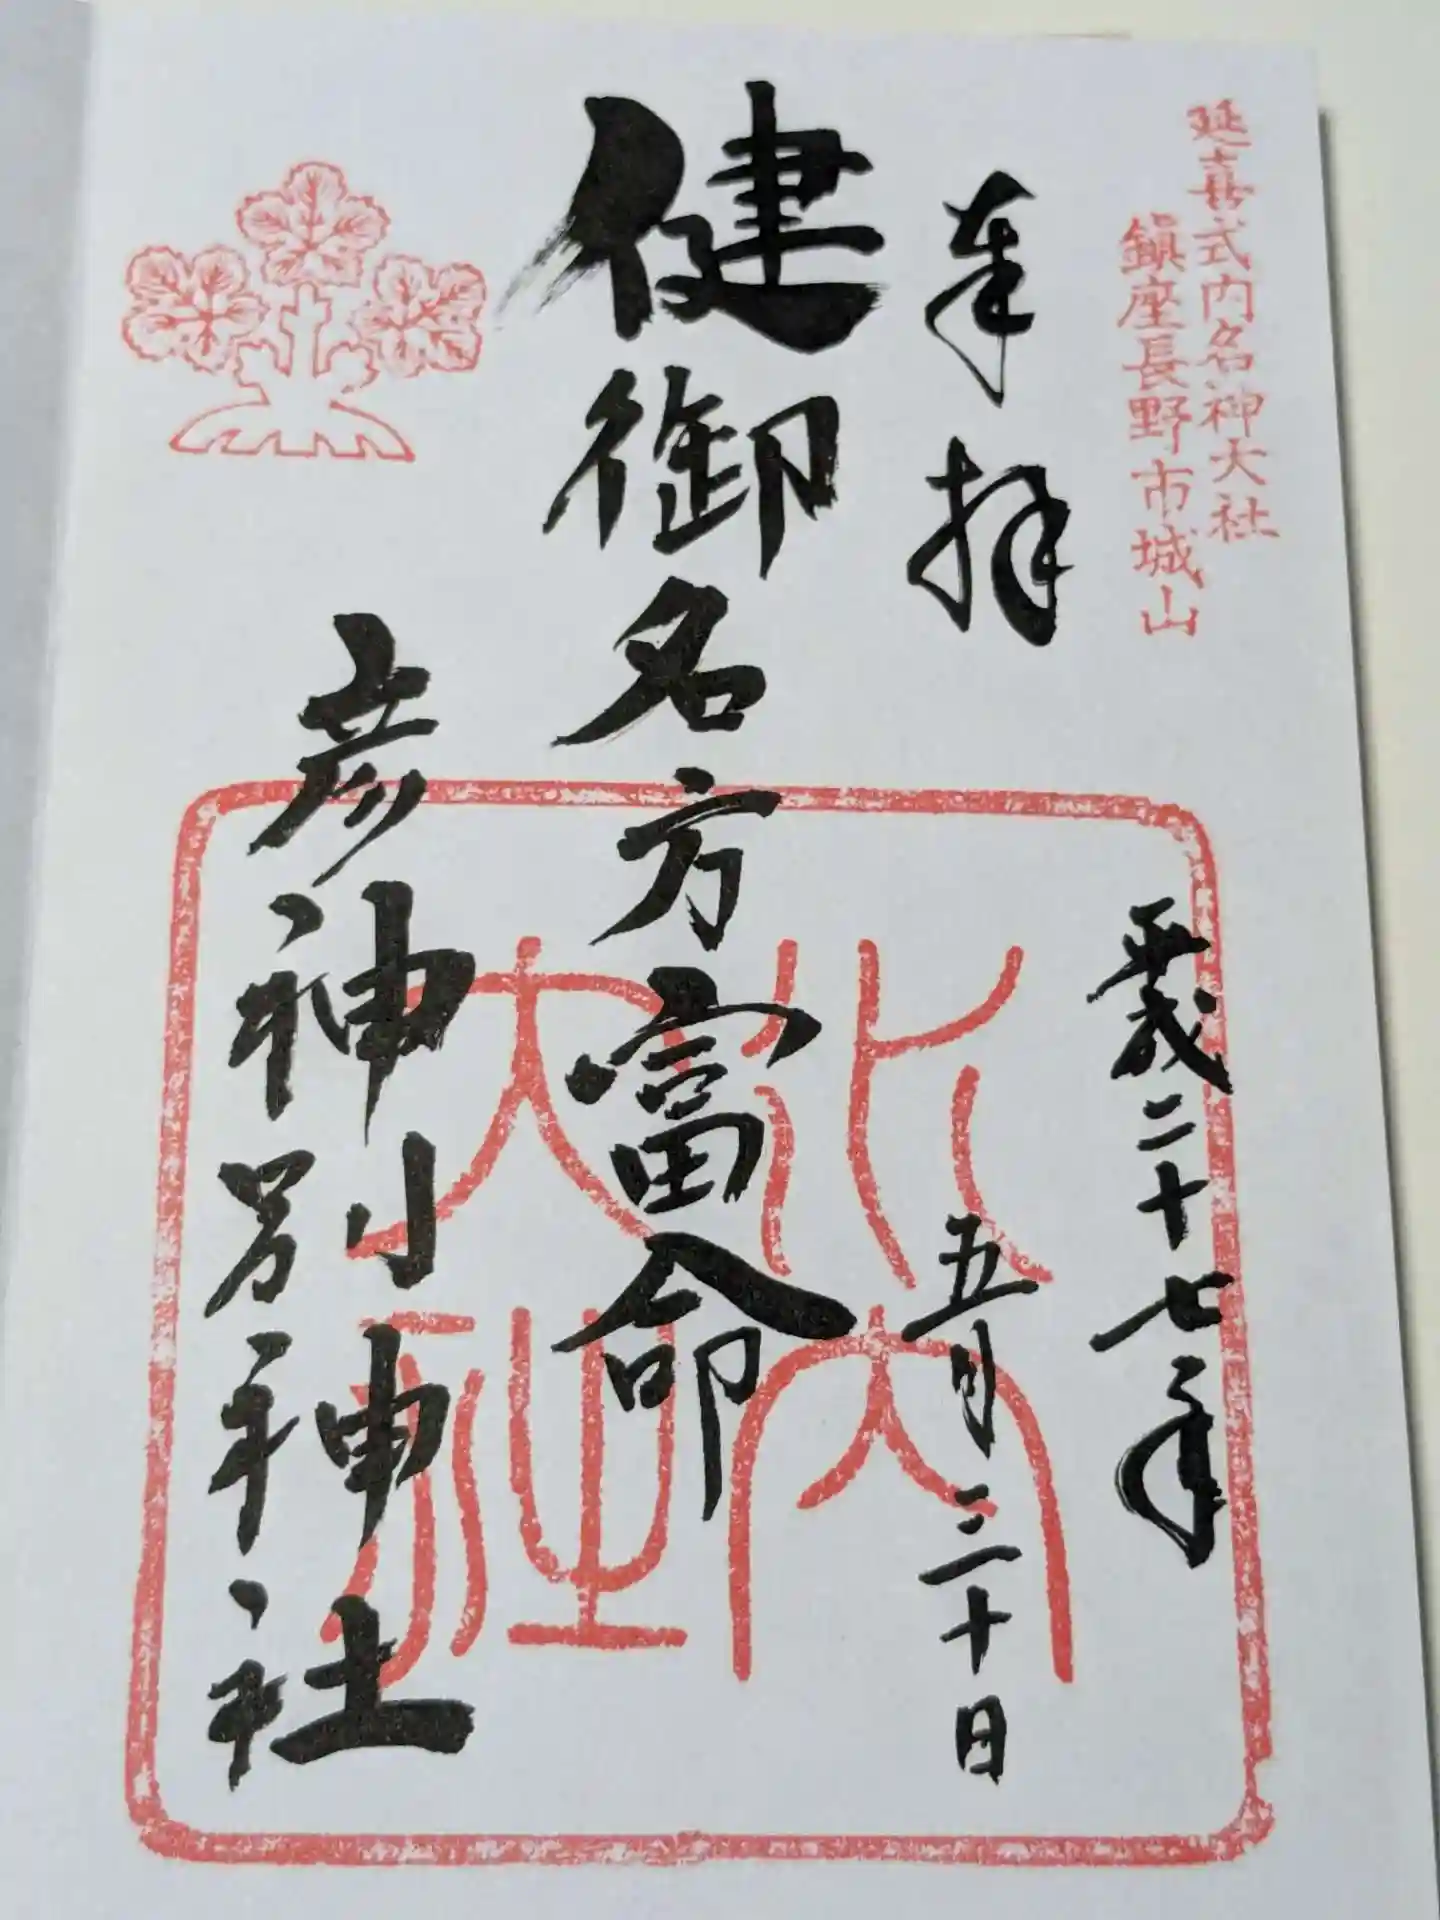 延喜式内名神大社
鎮座長野市城山
奉拝
平成二十七年
五月三十日
健御名方富命
彦神別神社
水内
大社